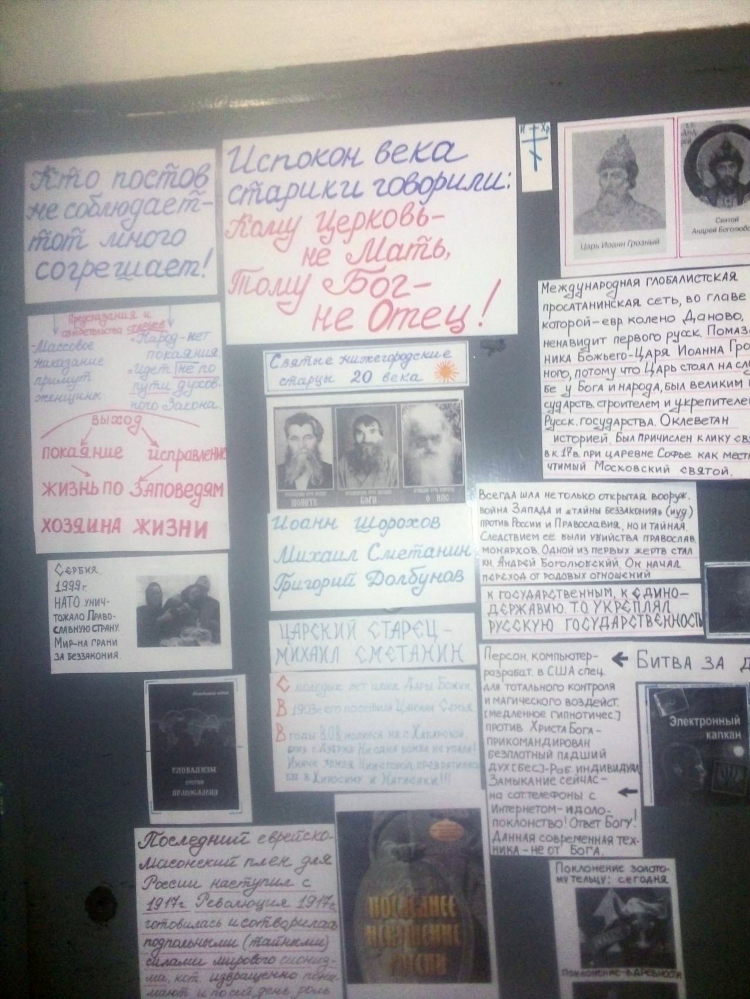 Кто постов
не соблюдает-
тот много
согрешает!
Испокон века
старики говорили:
Кому Церковь-
не Мать,
Тому Бог-
не Отец!
И Хр
Царь Иоанн Грозный
Святой
Андрей Боголюбс
Предсказания и
-Массовое
наказание
примут
женщины
-Народ-нет
покаяния
-Идет (не по
пути духов-
ного Закона.
выход
покаяние исправление
жизнь по Заповедям
хозяина жизни
Святые нижегородские
старцы 20 века
Иоанн Шорохов
Михаил Сметанин
Григорий Долбунов
Царский старец-
Михаил Сметанин
Международная глобалистская
просатанинская сеть, во главе
которой-евр колено Даново,
ненавидит первого русск. Помаз
ника Божьего-Царя Иоанна Гро
ного, потому что Царь стоял на сл
бе у Бога и народа, был великим
сударств. строителем и укрепителе
Русск. государства. Оклеветан
историей. Был причислен к лику св
в к. 17в. при царевне Софье как мест
чтимый Московский святой.
Всегда шла не только открытая вооруж.
война Запада и «тайны беззакония» (иуд)
против России и Православия, но и тайная.
Следствием ее были убийства православ.
монархов. Одной из первых жертв стал
кн. Андрей Боголюбский. Он начал
переход от родовых отношений
к государственным, к едино-
державию. То укреплял
русскую государственность
Сербия
1999г.
НАТО унич-
тожало Право-
славную страну.
Мир-на грани
за беззакония.
Глобализм
против
православия
Персон. компьютер-
разработ. в США спец.
для тотального контроля
и магического воздейст.
(медленное гипнотичес.)
против Христа Бога-
прикомандирован
безплотный падший
дух (бес)-раб. индивидуал
Замыкание сейчас-
на сот. телефоны с
Интернетом-идоло-
поклонство! Ответ Богу!
Данная современная тех-
ника-не от Бога.
← Битва за Д
Электронный
капкан
Последний еврейско-
масонский плен для
России наступил с
1917г. Революция 1917г.
готовилась и сотворилась
подпольными (тайными)
силами мирового сиониз-
ма, кот. извращенно пони-
мают и по сий день роль
Последнее
искушение
России
Поклонение золото-
му тельцу: сегодня
Поклонение-в древности